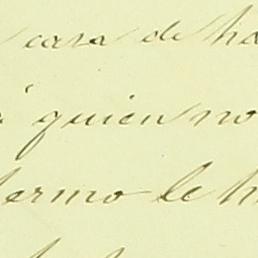 casa de ha
á quien no
fermo le h